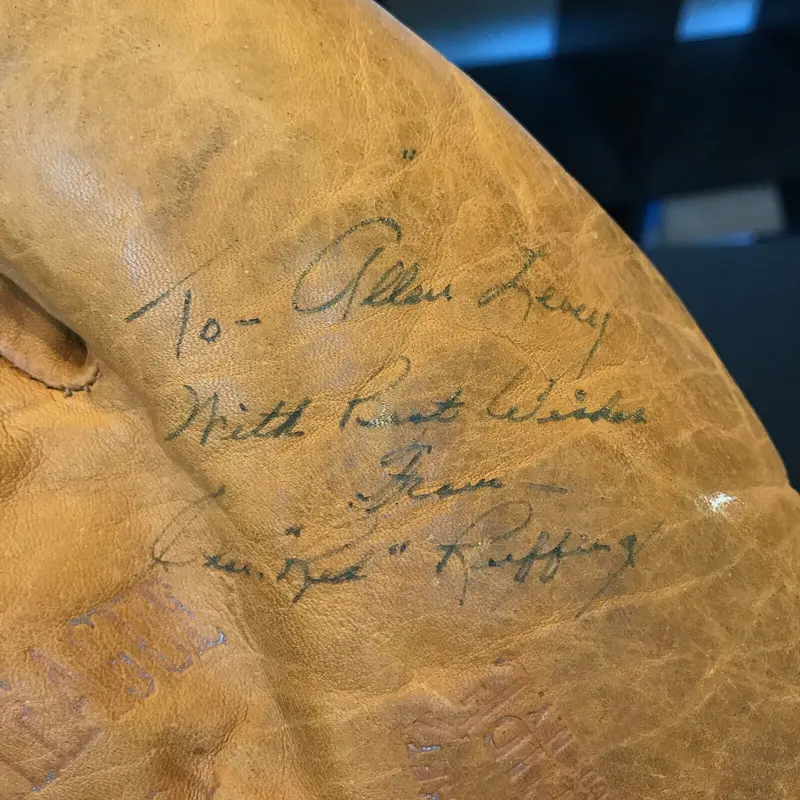 To- Allen Levey
With Best Wishes
From-
Chas. "Red" Ruffing
LEAGUE